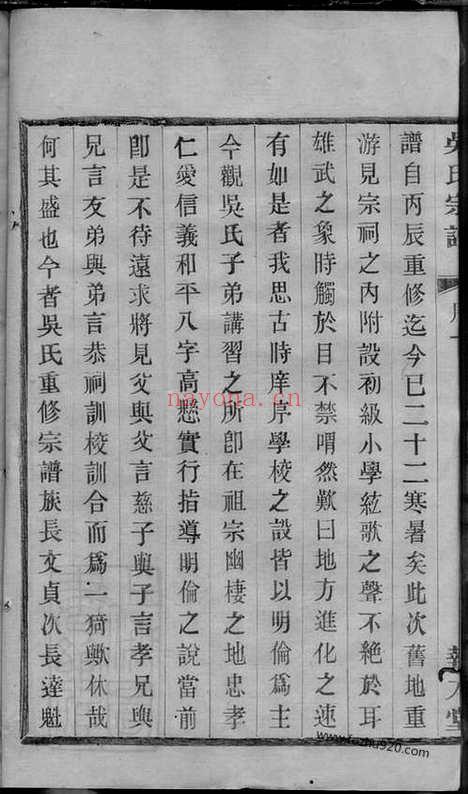 吳氏宗譜
譜自丙辰重修迄今已二十二寒暑矣此次舊地重
游見宗祠之內附設初級小學絃歌之聲不絕於耳
雄武之象時觸於目不禁喟然歎曰地方進化之速
有如是者我思古時庠序學校之設皆以明倫爲主
今觀吳氏子弟講習之所卽在祖宗幽棲之地忠孝
仁愛信義和平八字高懸實行指導明倫之說當前
卽是不待遠求將見父與父言慈子與子言孝兄與
兄言友弟與弟言恭祠訓校訓合而爲一猗歟休哉
何其盛也今者吳氏重修宗譜族長文貞次長達魁
nayona.cn
www.fozhu920.com